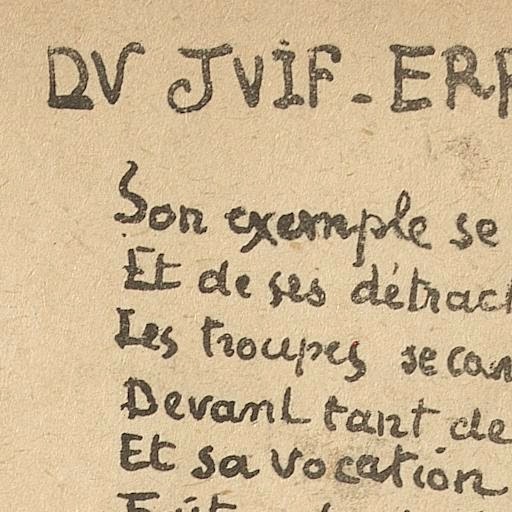 DV JVIF-ERR
Son exemple se
Et de ses détract
Les troupes se can
Devant tant de
Et sa vocation